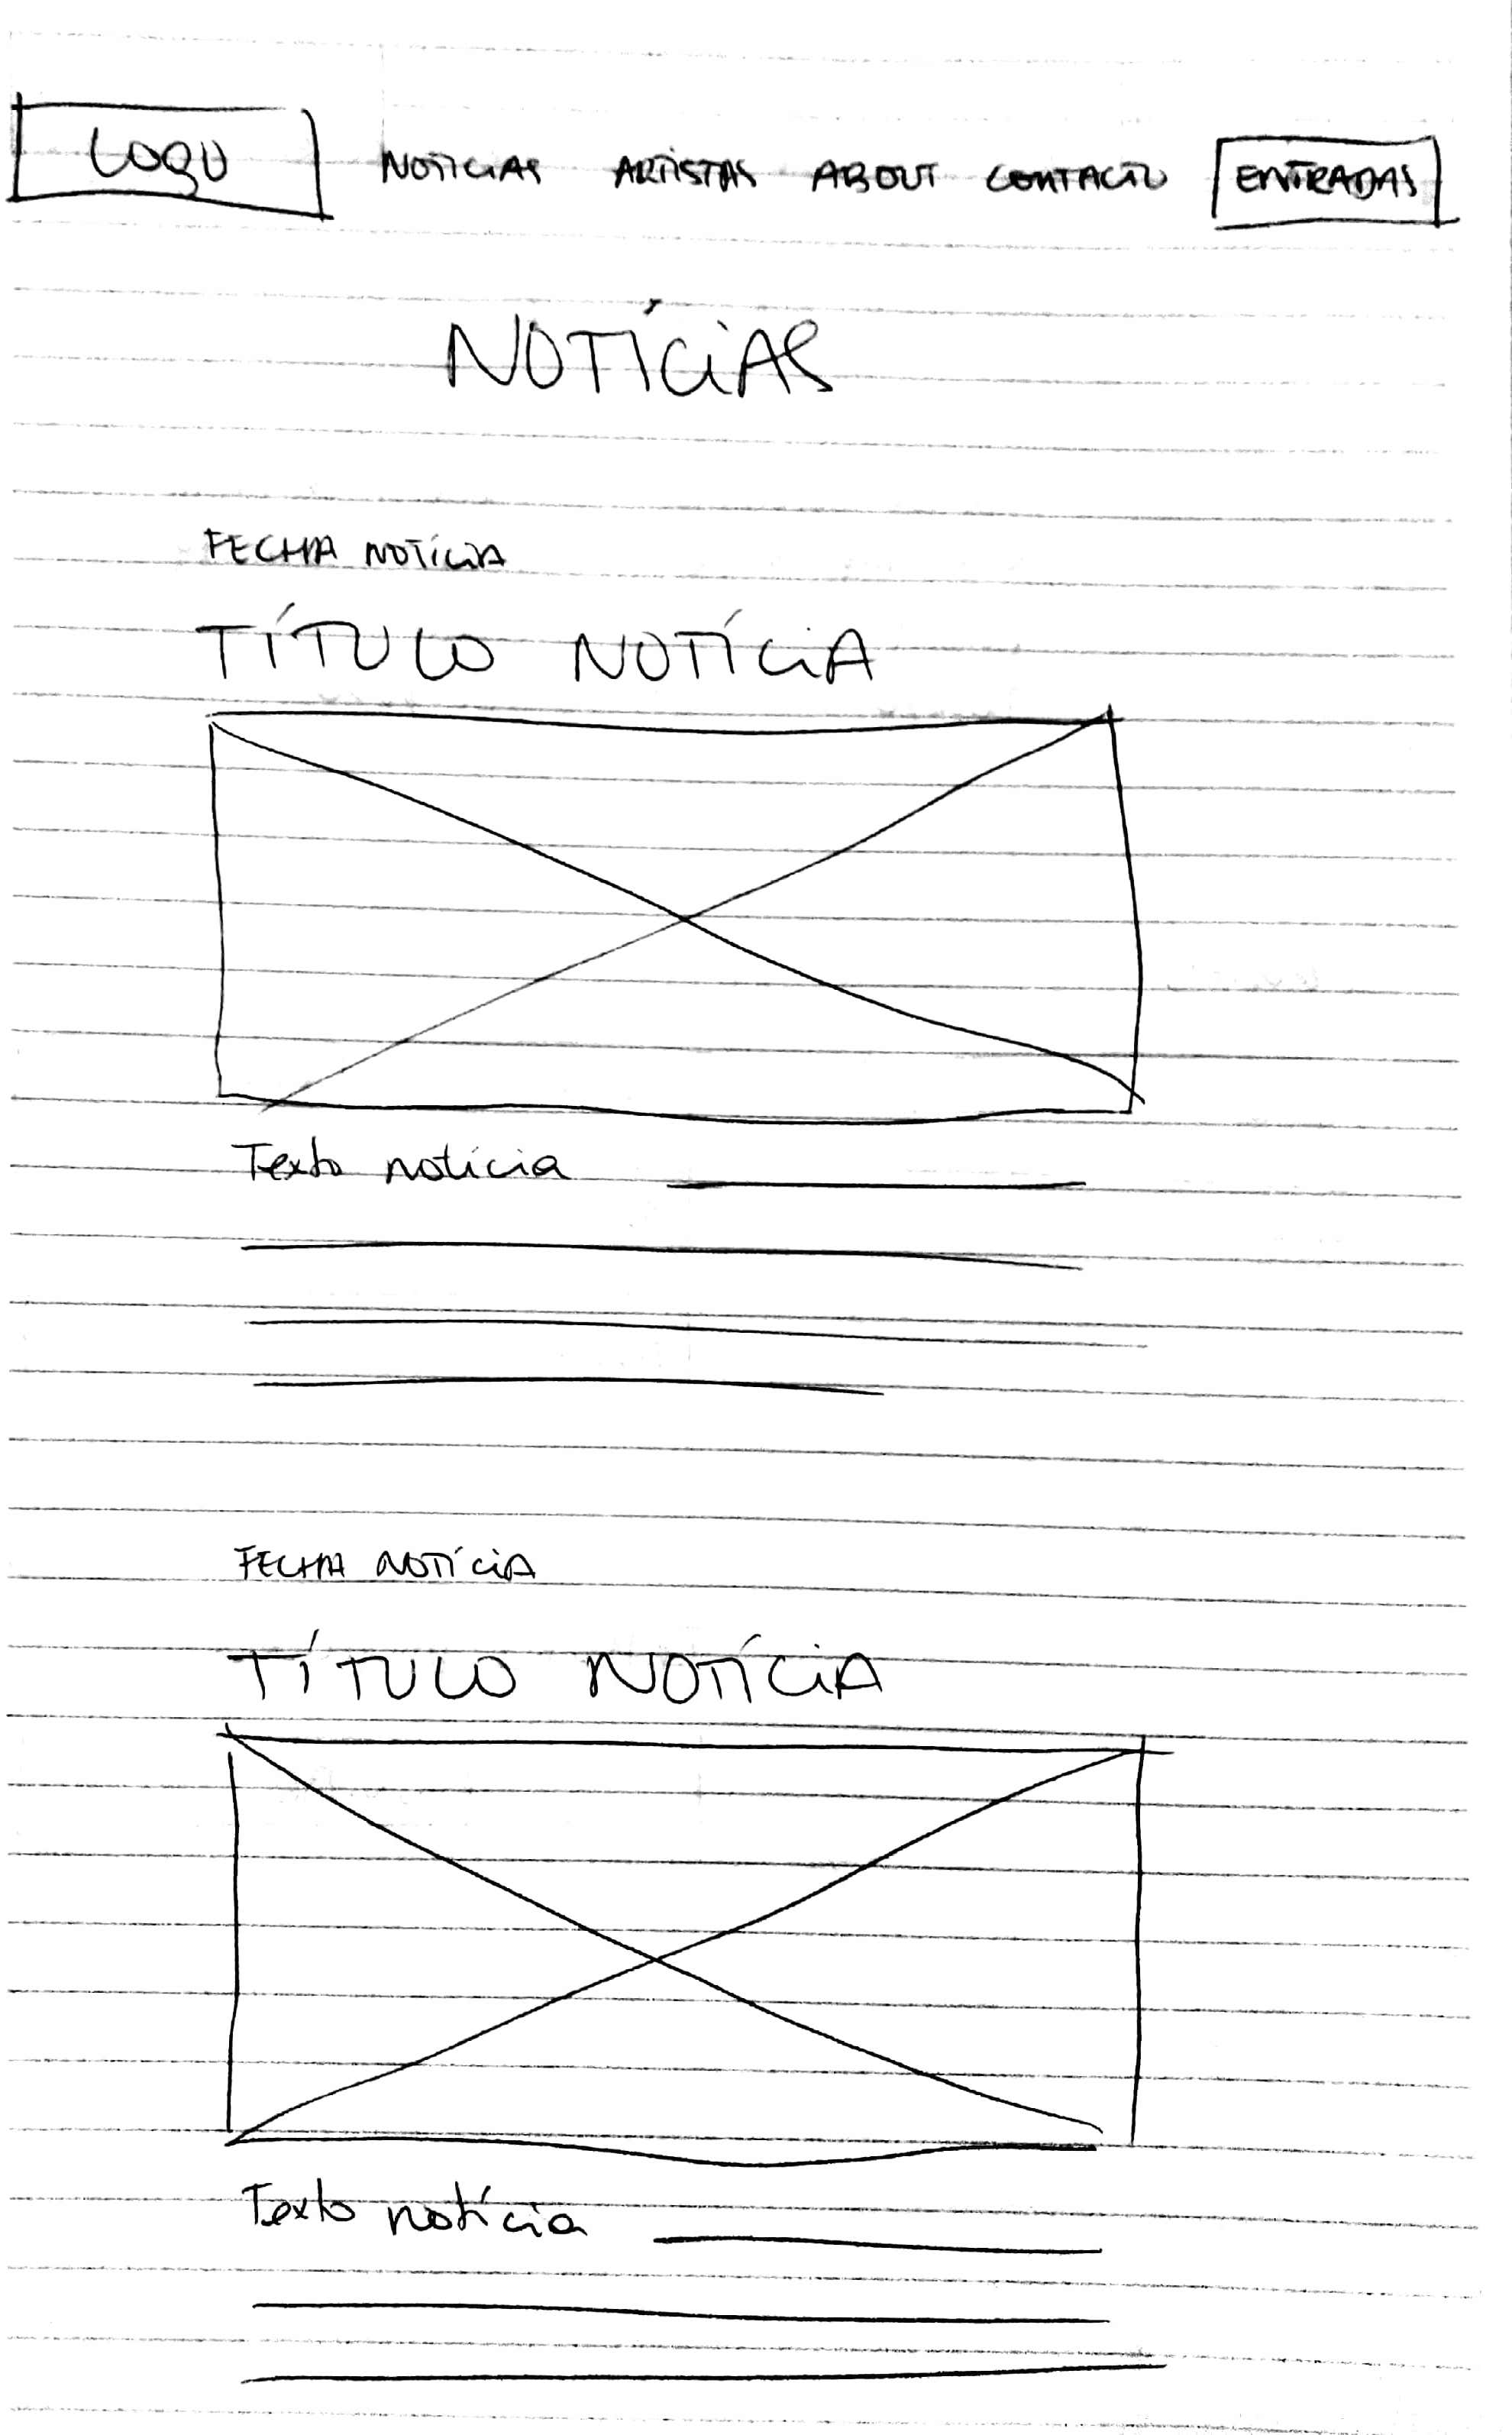 LOGO NOTICIAS ARTISTAS ABOUT CONTACTO ENTRADAS
NOTÍCIAS
FECHA NOTÍCIA
TÍTULO NOTÍCIA
Texto notícia
FECHA NOTÍCIA
TÍTULO NOTÍCIA
Texto notícia